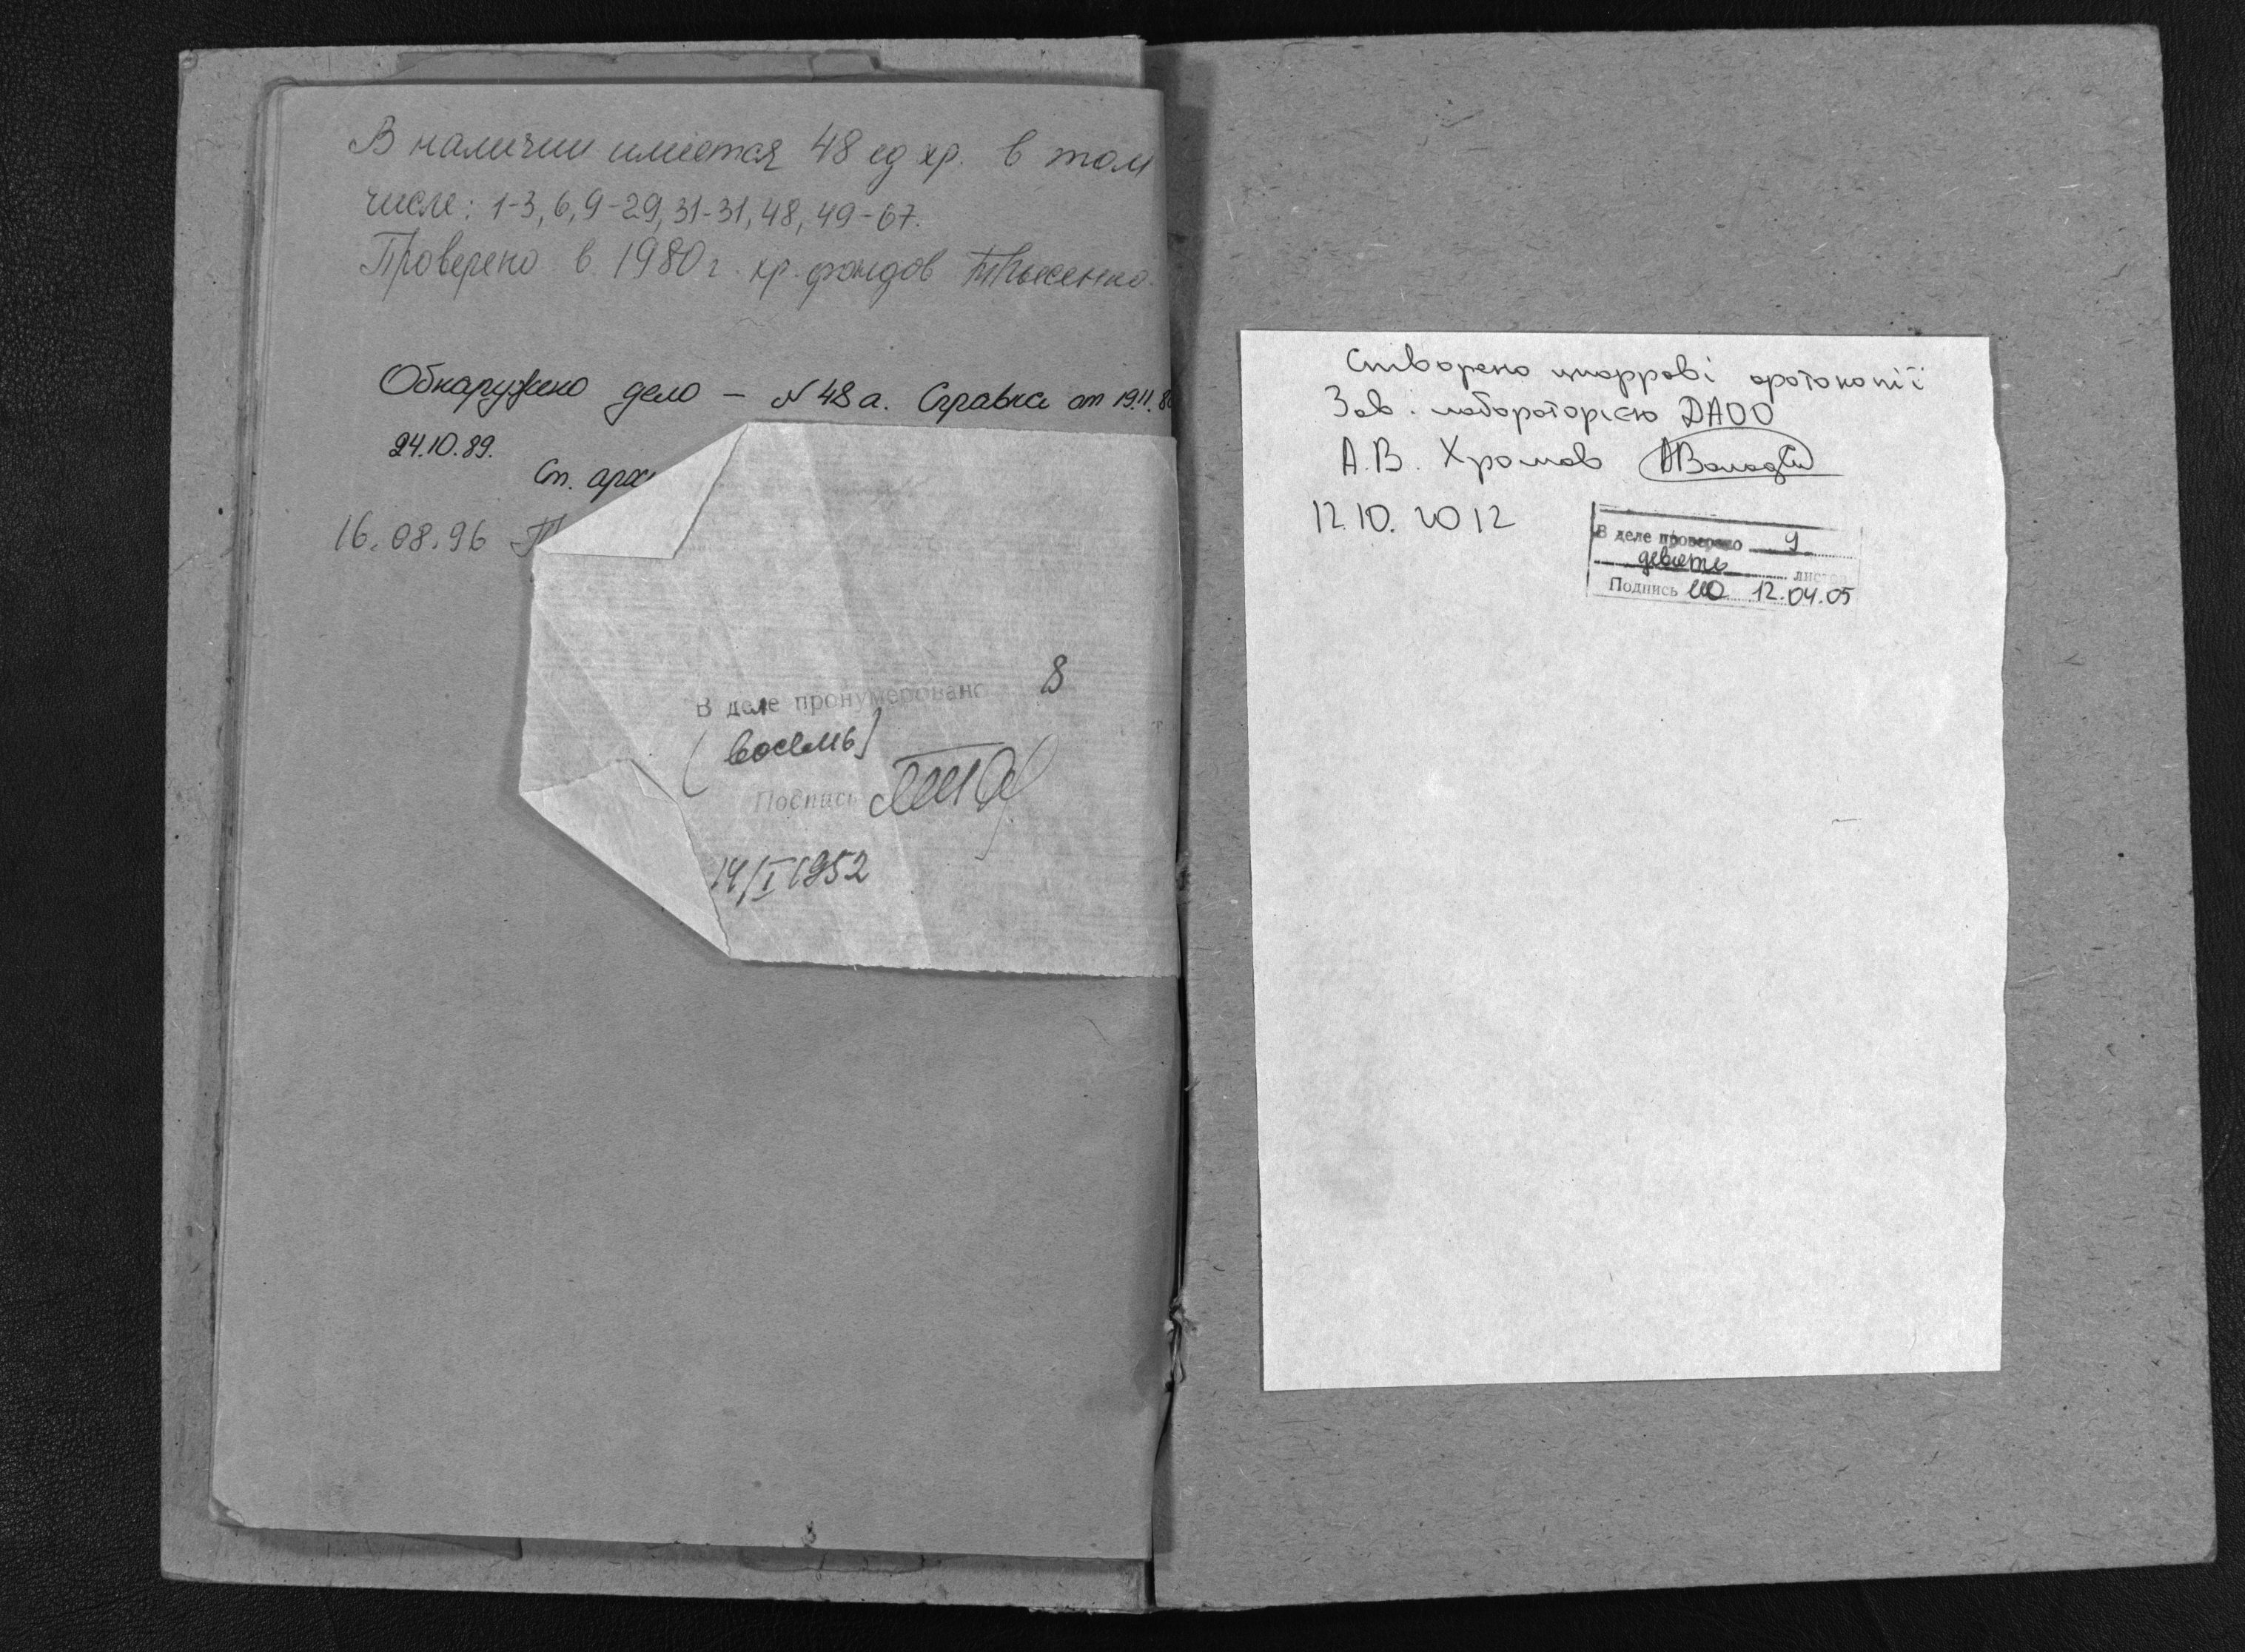 В наличии имеется 48 ед хр. в том
числе: 1-3, 6, 9-29, 31-31, 48, 49-67.
Проверено в 1980 г. хр. фондов
Обнаружено дело - N 48 а. Справка от 19.11.8
24.10.89.
Ст. арх
16.08.96 П
В деле пронумеровано 8
(восемь)
Подпись
14/I 1952
Створено цифрові фотокопії
Зав. лабораторією ДАОО
А.В. Хромов
12.10.2012
В деле проверено 9
девять листов
Подпись 12.04.05